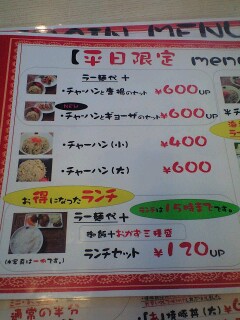 MENU
【平日限定 menu
ラー麺代 +
・チャーハンと唐揚のセット ¥600UP
NEW
・チャーハンとギョーザのセット ¥600UP
・チャーハン(小) ¥400
・チャーハン(大) ¥600
お得になったランチ
ランチは15時までです。
ラー麺代+
御飯+おかず三種盛
ランチセット ¥120UP